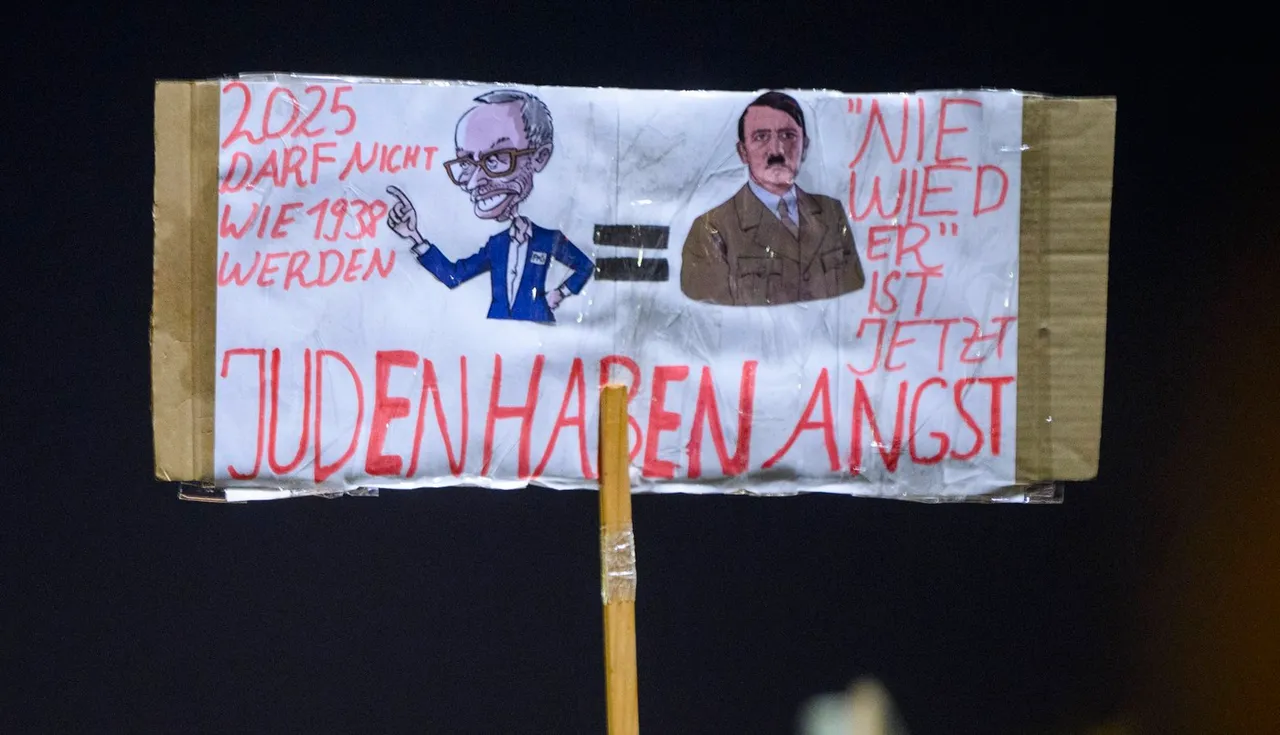 2025
DARF NICHT
WIE 1938
WERDEN
=
"NIE
WIED
ER"
IST
JETZT
JUDEN HABEN ANGST